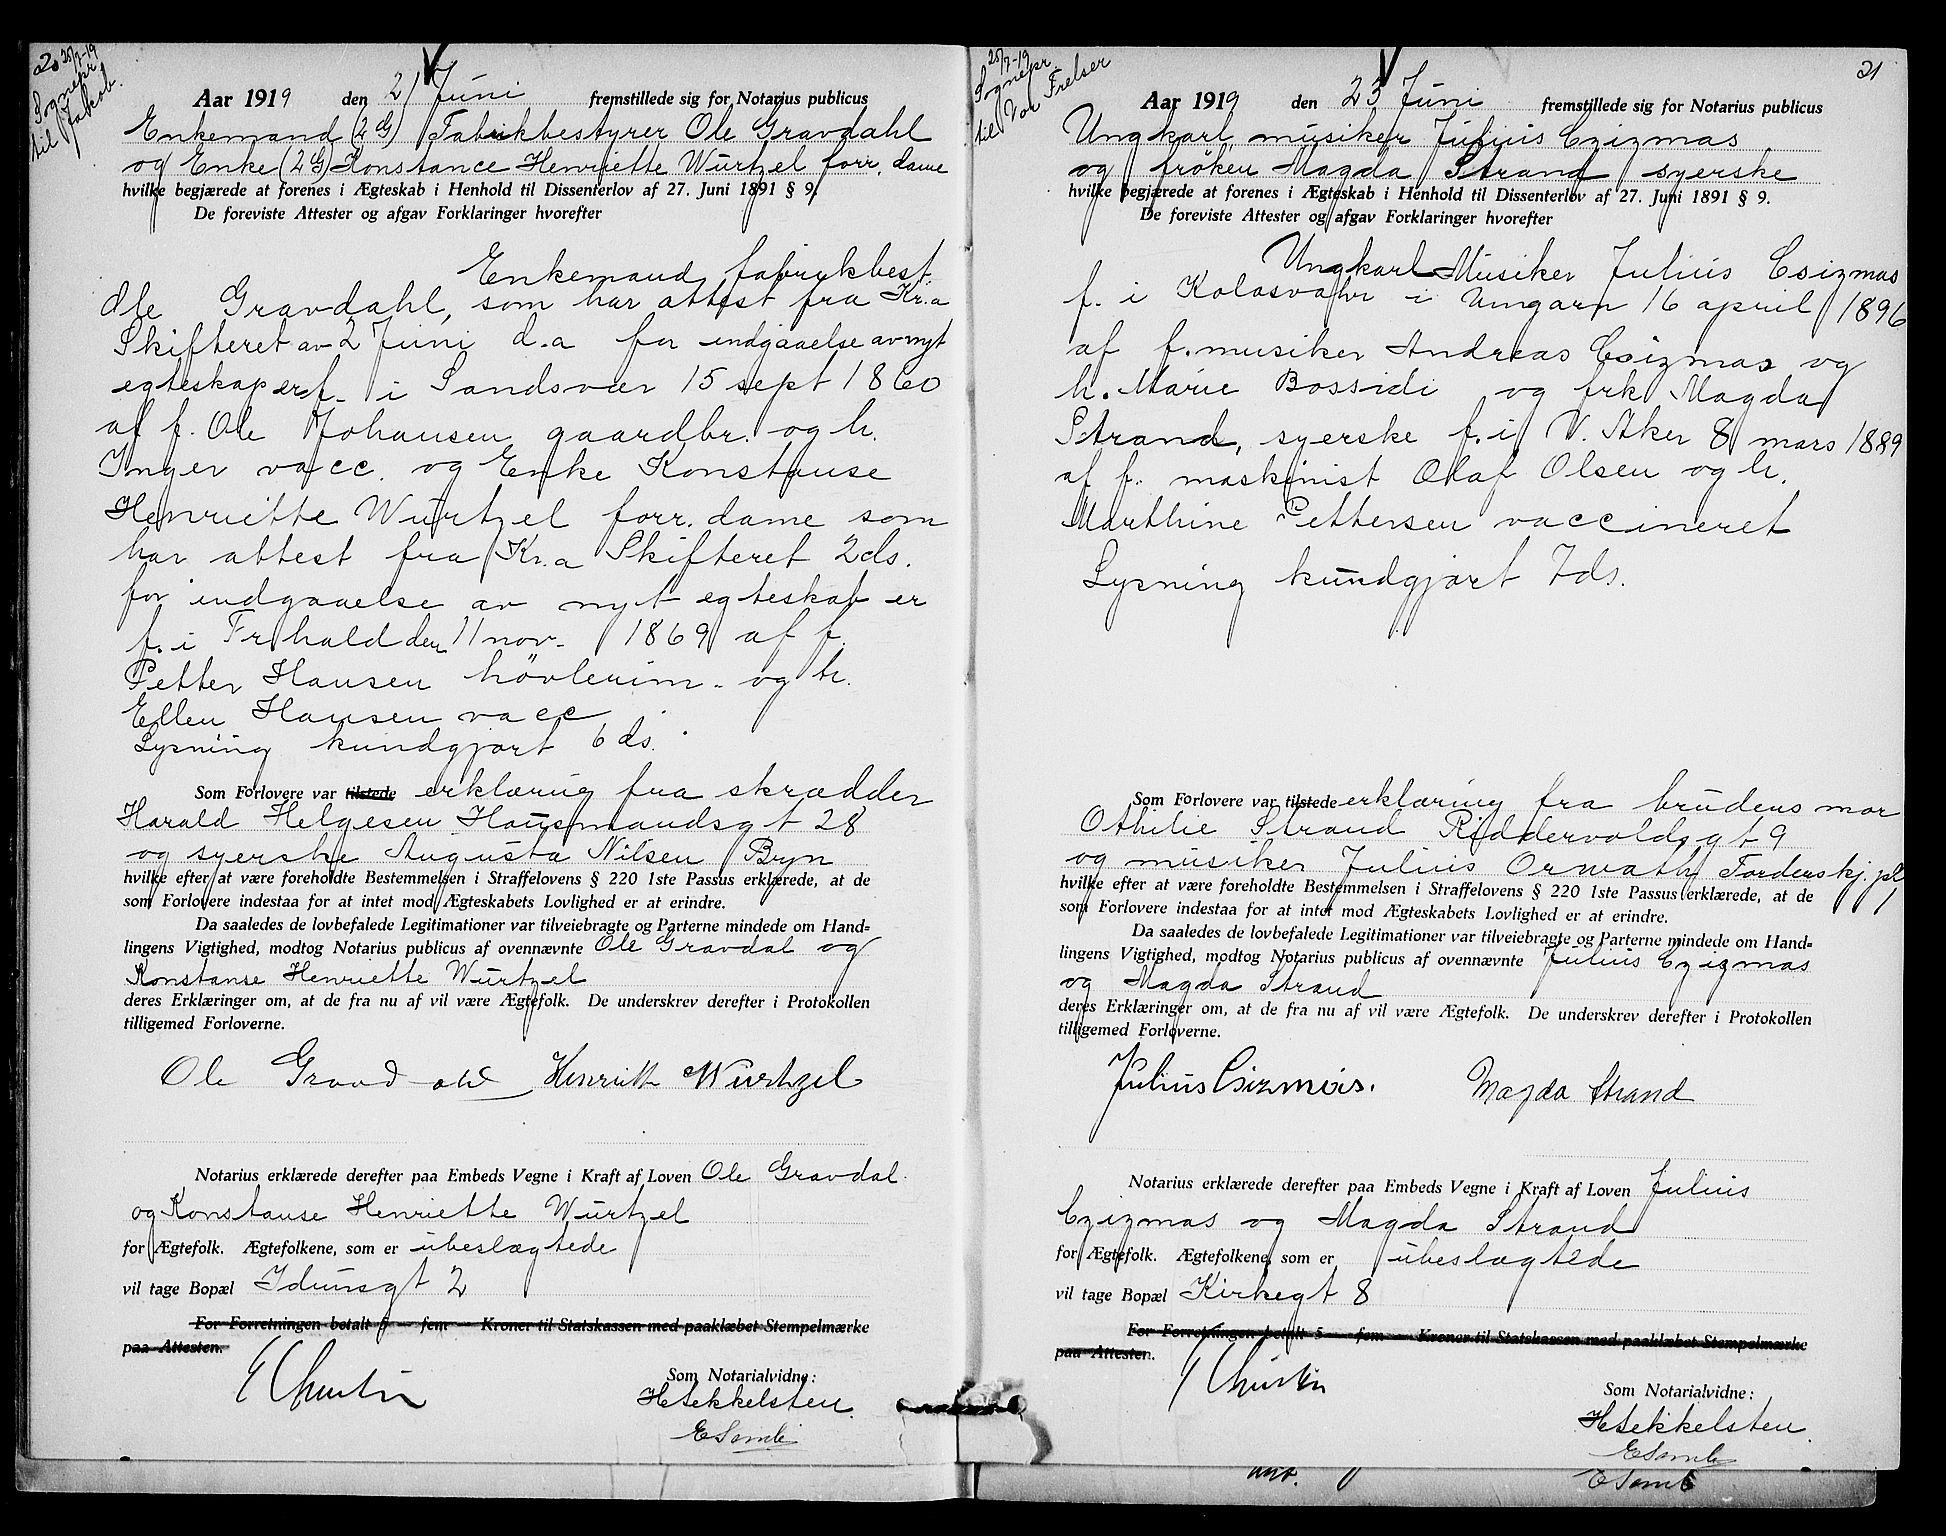 20 25/7-19
Sognepr.
til Jakob.
Aar 1919 den 21 Juni fremstillede sig for Notarius publicus
Enkemand (2G) Fabrikbestyrer Ole Gravdahl
og Enke (2G) Konstance Henriette Wurtzel forr. dame
hvilke begjærede at forenes i Ægteskab i Henhold til Dissenterlov af 27. Juni 1891 § 9.
De foreviste Attester og afgav Forklaringer hvorefter
Enkemand fabrikbest.
Ole Gravdahl, som har attest fra Kr.a
Skifteret av 2 Juni d.a for indgaaelse av nyt
egteskap er f. i Sandsvær 15 sept 1860
af f. Ole Johansen gaardbr. og h.
Inger vacc. og Enke Konstanse
Henriette Wurtzel forr. dame som
har attest fra Kr.a Skifteret 2 ds.
for indgaaelse av nyt egteskab er
f. i Frhald den 11 nov. 1869 af f.
Petter Hansen hövlerim. og h.
Ellen Hansen vacc
Lysning kundgjort 6 ds.
Som Forlovere var tilstede erklæring fra skrædder
Harald Helgesen Hausmandsgt 28
og syerske Augusta Nilsen Bryn
hvilke efter at være foreholdte Bestemmelsen i Straffelovens § 220 1ste Passus erklærede, at de
som Forlovere indestaa for at intet mod Ægteskabets Lovlighed er at erindre.
Da saaledes de lovbefalede Legitimationer var tilveiebragte og Parterne mindede om Hand-
lingens Vigtighed, modtog Notarius publicus af ovennævnte Ole Gravdal og
Konstanse Henriette Wurtzel
deres Erklæringer om, at de fra nu af vil være Ægtefolk. De underskrev derefter i Protokollen
tilligemed Forloverne.
Ole Gravdahl Henriette Wurtzel
Notarius erklærede derefter paa Embeds Vegne i Kraft af Loven Ole Gravdal
og Konstanse Henriette Wurtzel
for Ægtefolk. Ægtefolkene, som er ubeslægtede
vil tage Bopæl Idunsgt 2
For Forretningen betalt 5 — fem — Kroner til Statskassen med paaklæbet Stempelmærke
paa Attesten.
Som Notarialvidne:
H Sekkelsten
25/7-19
Sognepr.
til Vor Frelser
21
Aar 1919 den 23 Juni fremstillede sig for Notarius publicus
Ungkarl, musiker Julius Czizmas
og fröken Magda Strand syerske
hvilke begjærede at forenes i Ægteskab i Henhold til Dissenterlov af 27. Juni 1891 § 9.
De foreviste Attester og afgav Forklaringer hvorefter
Ungkarl Musiker Julius Csizmas
f. i Kolosvahr i Ungarn 16 april 1896
af f. musiker Andreas Csizmas og
h. Marie Bossidi og frk Magda
Strand, syerske f. i V. Aker 8 mars 1889
af f. maskinist Olaf Olsen og h.
Marthine Pettersen vaccineret
Lysning kundgjort 7 ds.
Som Forlovere var tilstede erklæring fra brudens mor
Othilie Strand Riddervoldsgt 9
og musiker Julius Orwath Tordenskj. pl 1
hvilke efter at være foreholdte Bestemmelsen i Straffelovens § 220 1ste Passus erklærede, at de
som Forlovere indestaa for at intet mod Ægteskabets Lovlighed er at erindre.
Da saaledes de lovbefalede Legitimationer var tilveiebragte og Parterne mindede om Hand-
lingens Vigtighed, modtog Notarius publicus af ovennævnte Julius Czizmas
og Magda Strand
deres Erklæringer om, at de fra nu af vil være Ægtefolk. De underskrev derefter i Protokollen
tilligemed Forloverne.
Julius Csizmás. Magda Strand
Notarius erklærede derefter paa Embeds Vegne i Kraft af Loven Julius
Czizmas og Magda Strand
for Ægtefolk. Ægtefolkene, som er ubeslægtede
vil tage Bopæl Kirkegt 8
For Forretningen betalt 5 — fem — Kroner til Statskassen med paaklæbet Stempelmærke
paa Attesten.
Som Notarialvidne:
H Sekkelsten